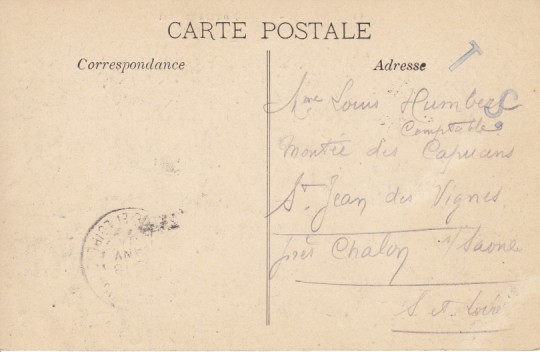 CARTE POSTALE
Correspondance
Adresse
T
Mme Louis Humbert
Comptable
Montée des Capucins
St Jean des Vignes
près Chalon s/Saône
S et Loire